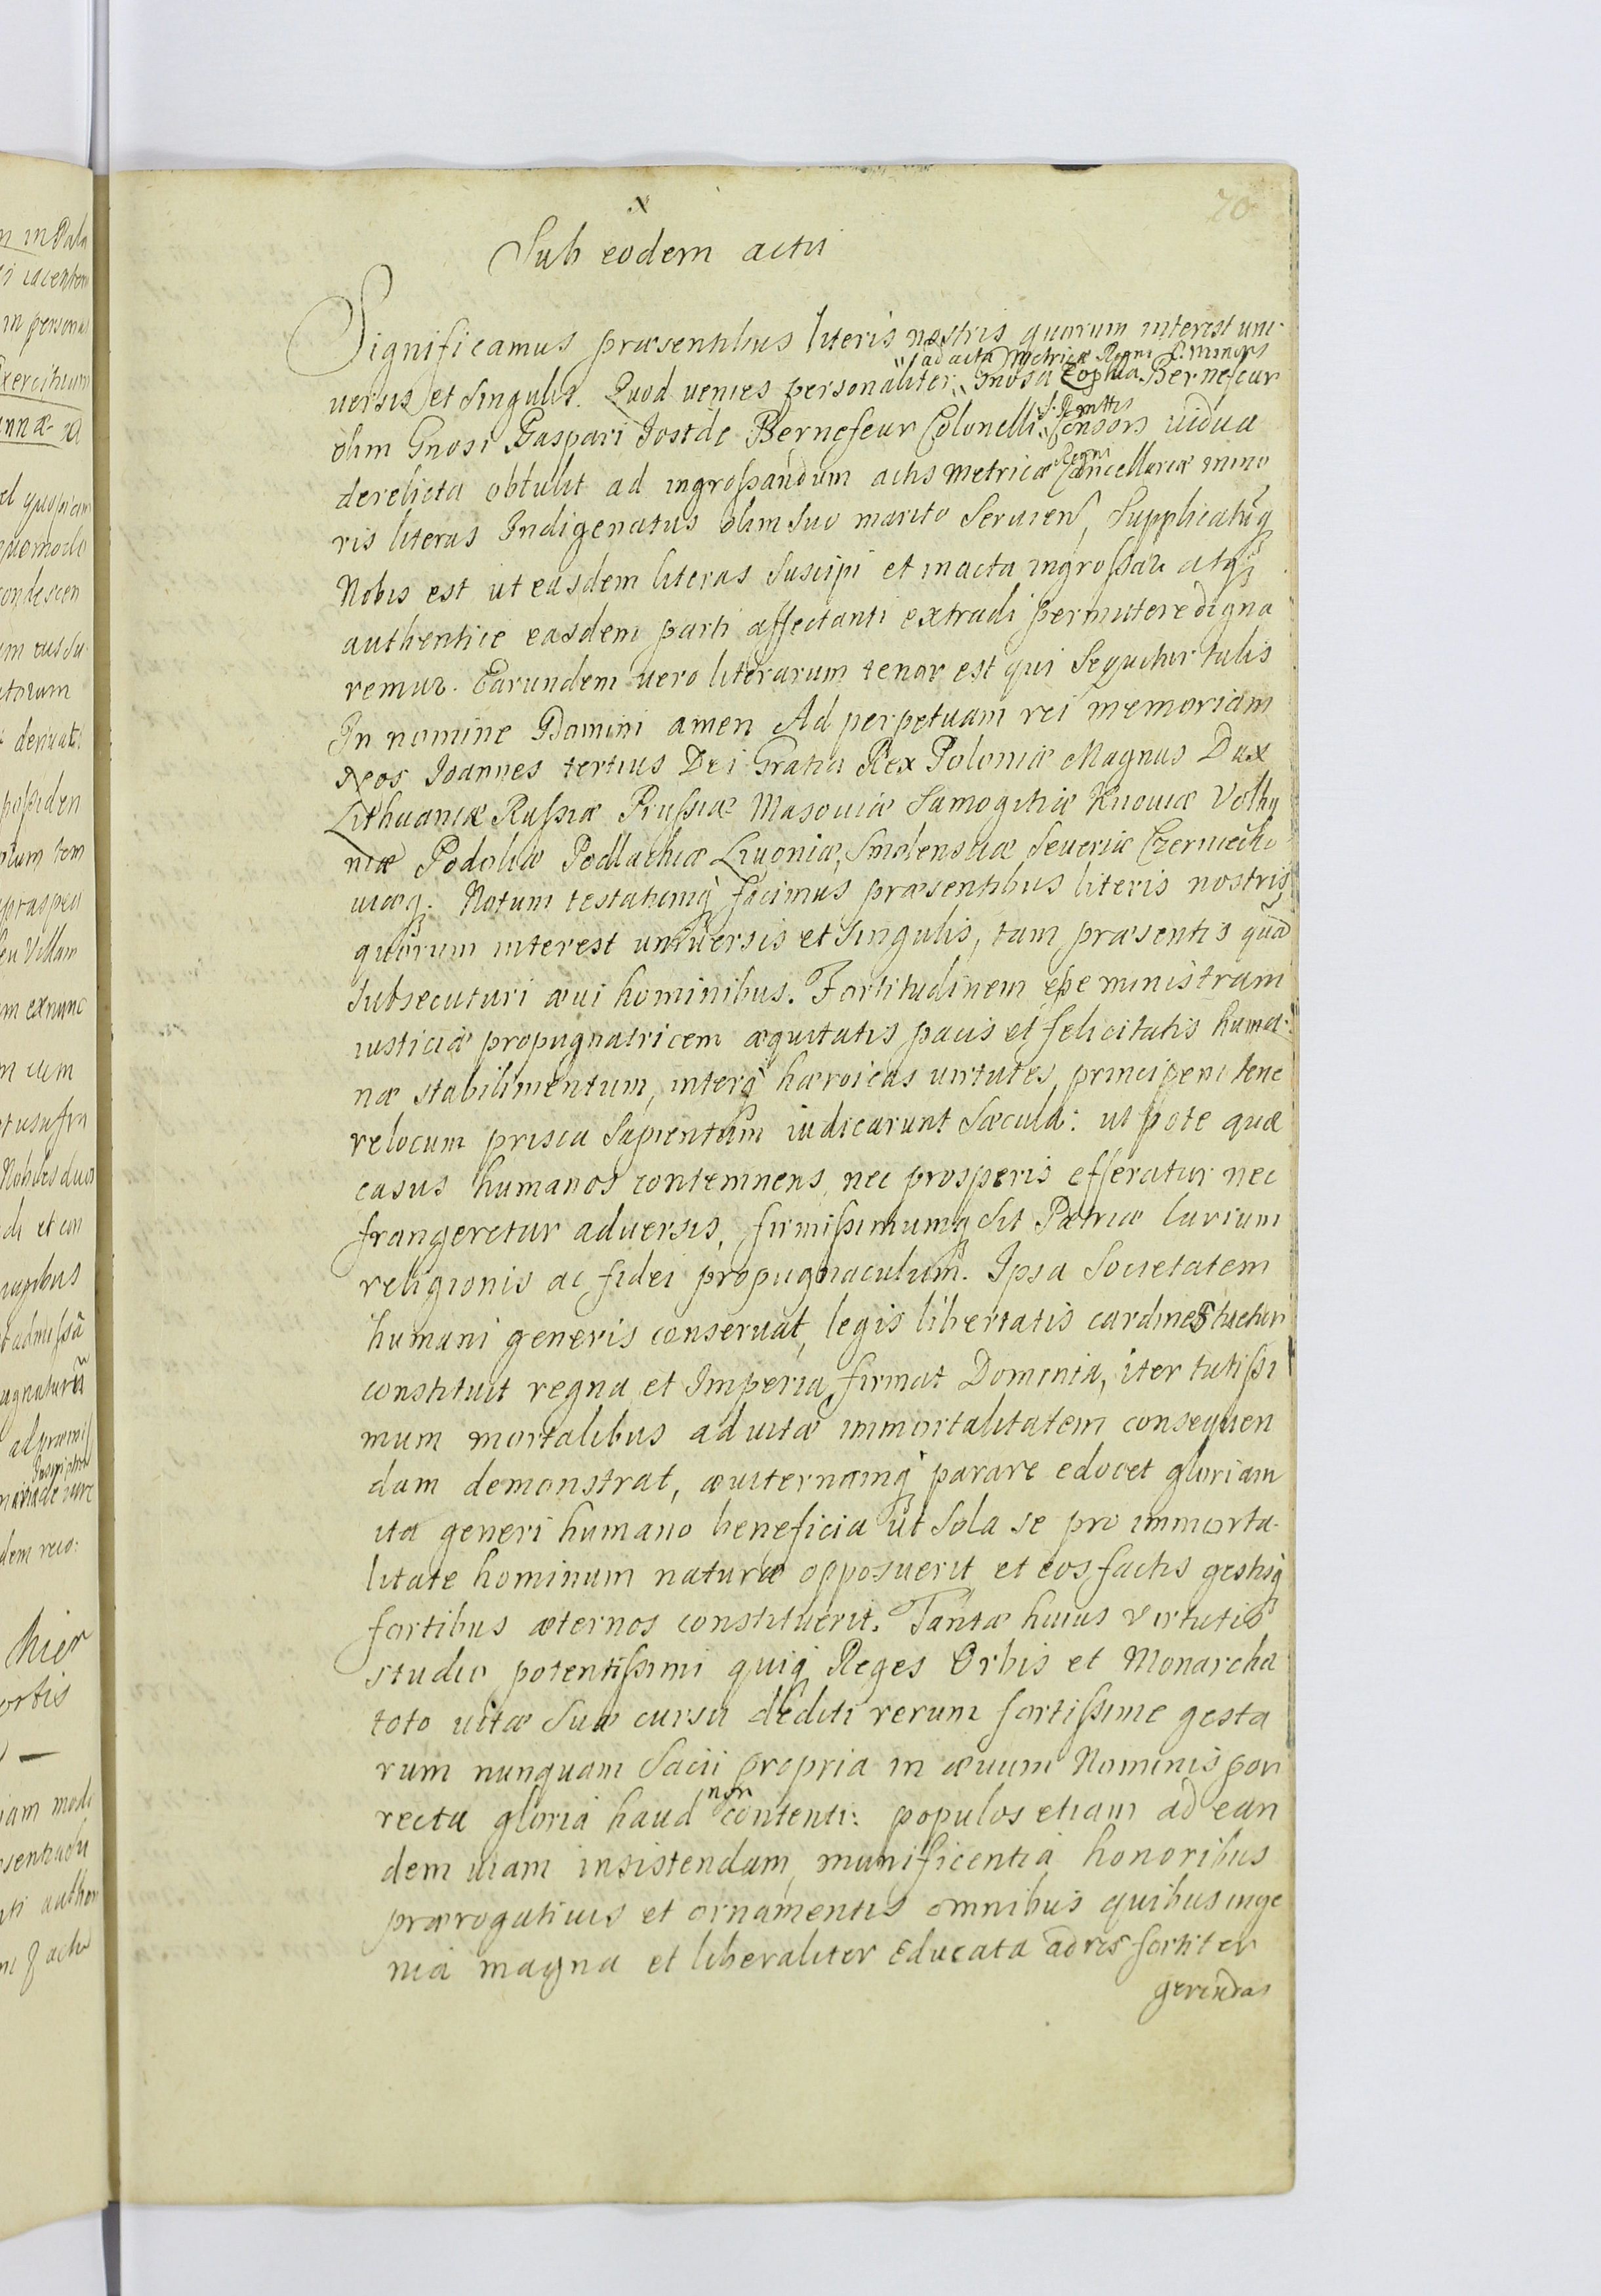 20
Sub eodem actu
Significamus præsentibus literis nostris quorum interest uni-
ad acta Metricæ Regni C. minoris
uersis et singulis. Quod veniens personaliter Gnosa Zophia Bernefeur
S. R. Mttis
olim Gnosi Gaspari Jost de Bernefeur Colonelli Consors vidua
Regni
derelicta obtulit ad ingroſsandum actis Metricæ Cancellariæ mino
ris literas Indigenatus olim suo marito seruien, Supplicatũq
Nobis est ut easdem literas suscipi et in acta ingroſsari atq
authentice easdem parti affectanti extradi permittere digna
remur. Earundem uero literarum tenor est qui sequitur talis
In nomine Domini amen Ad perpetuam rei memoriam
Nos Joannes tertius Dei Gratia Rex Poloniæ Magnus Dux
Lithuaniæ Ruſsiæ Pruſsiæ Masouiæ Samogitiæ Kiiouiæ Volhy
niæ Podoliæ Podlachiæ Liuoniæ, Smolensciæ Seueriæ Czerniecho
uiæq. Notum testatumq facimus præsentibus literis nostris
quorum interest uniuersis et singulis, tam præsentis quã
subsecuturi æui hominibus. Fortitudinem eſse ministram
iusticiæ propugnatricem æquitatis pacis et felicitatis huma-
næ stabilimentum, interq hæroicas uirtutes, principem tene
re locum prisca Sapientum iudicarunt Sæcula: ut pote quæ
casus humanos contemnens, nec prosperis efferatur nec
frangeretur aduersis, firmiſsimumq sit Patriæ larium
religionis ac fidei propugnaculum. Ipsa Societatem
humani generis conseruat, legis libertatis cardines tuetur
constituit regna et Imperia, firmat Dominia, iter tutiſsi
mum mortalibus ad uitæ immortalitatem consequen
dam demonstrat, æuiternamq parare edocet gloriam
ita generi humano beneficia ut sola se pro immorta-
litate hominum naturæ opposuerit et eos factis gestisq
fortibus æternos constituerit. Tantæ huius virtutis
studio potentiſsimi quiq Reges Orbis et Monarchæ
toto uitæ suæ cursu dediti rerum fortiſsime gesta
rum nunquam sacii propria in æuum Nominis por
non
recta gloria haud contenti: populos etiam ad ean
dem uiam insistendam, munificentia honoribus
prærogatiuis et ornamentis omnibus quibus inge
nia magna et liberaliter educata ad res fortiter
gerendas